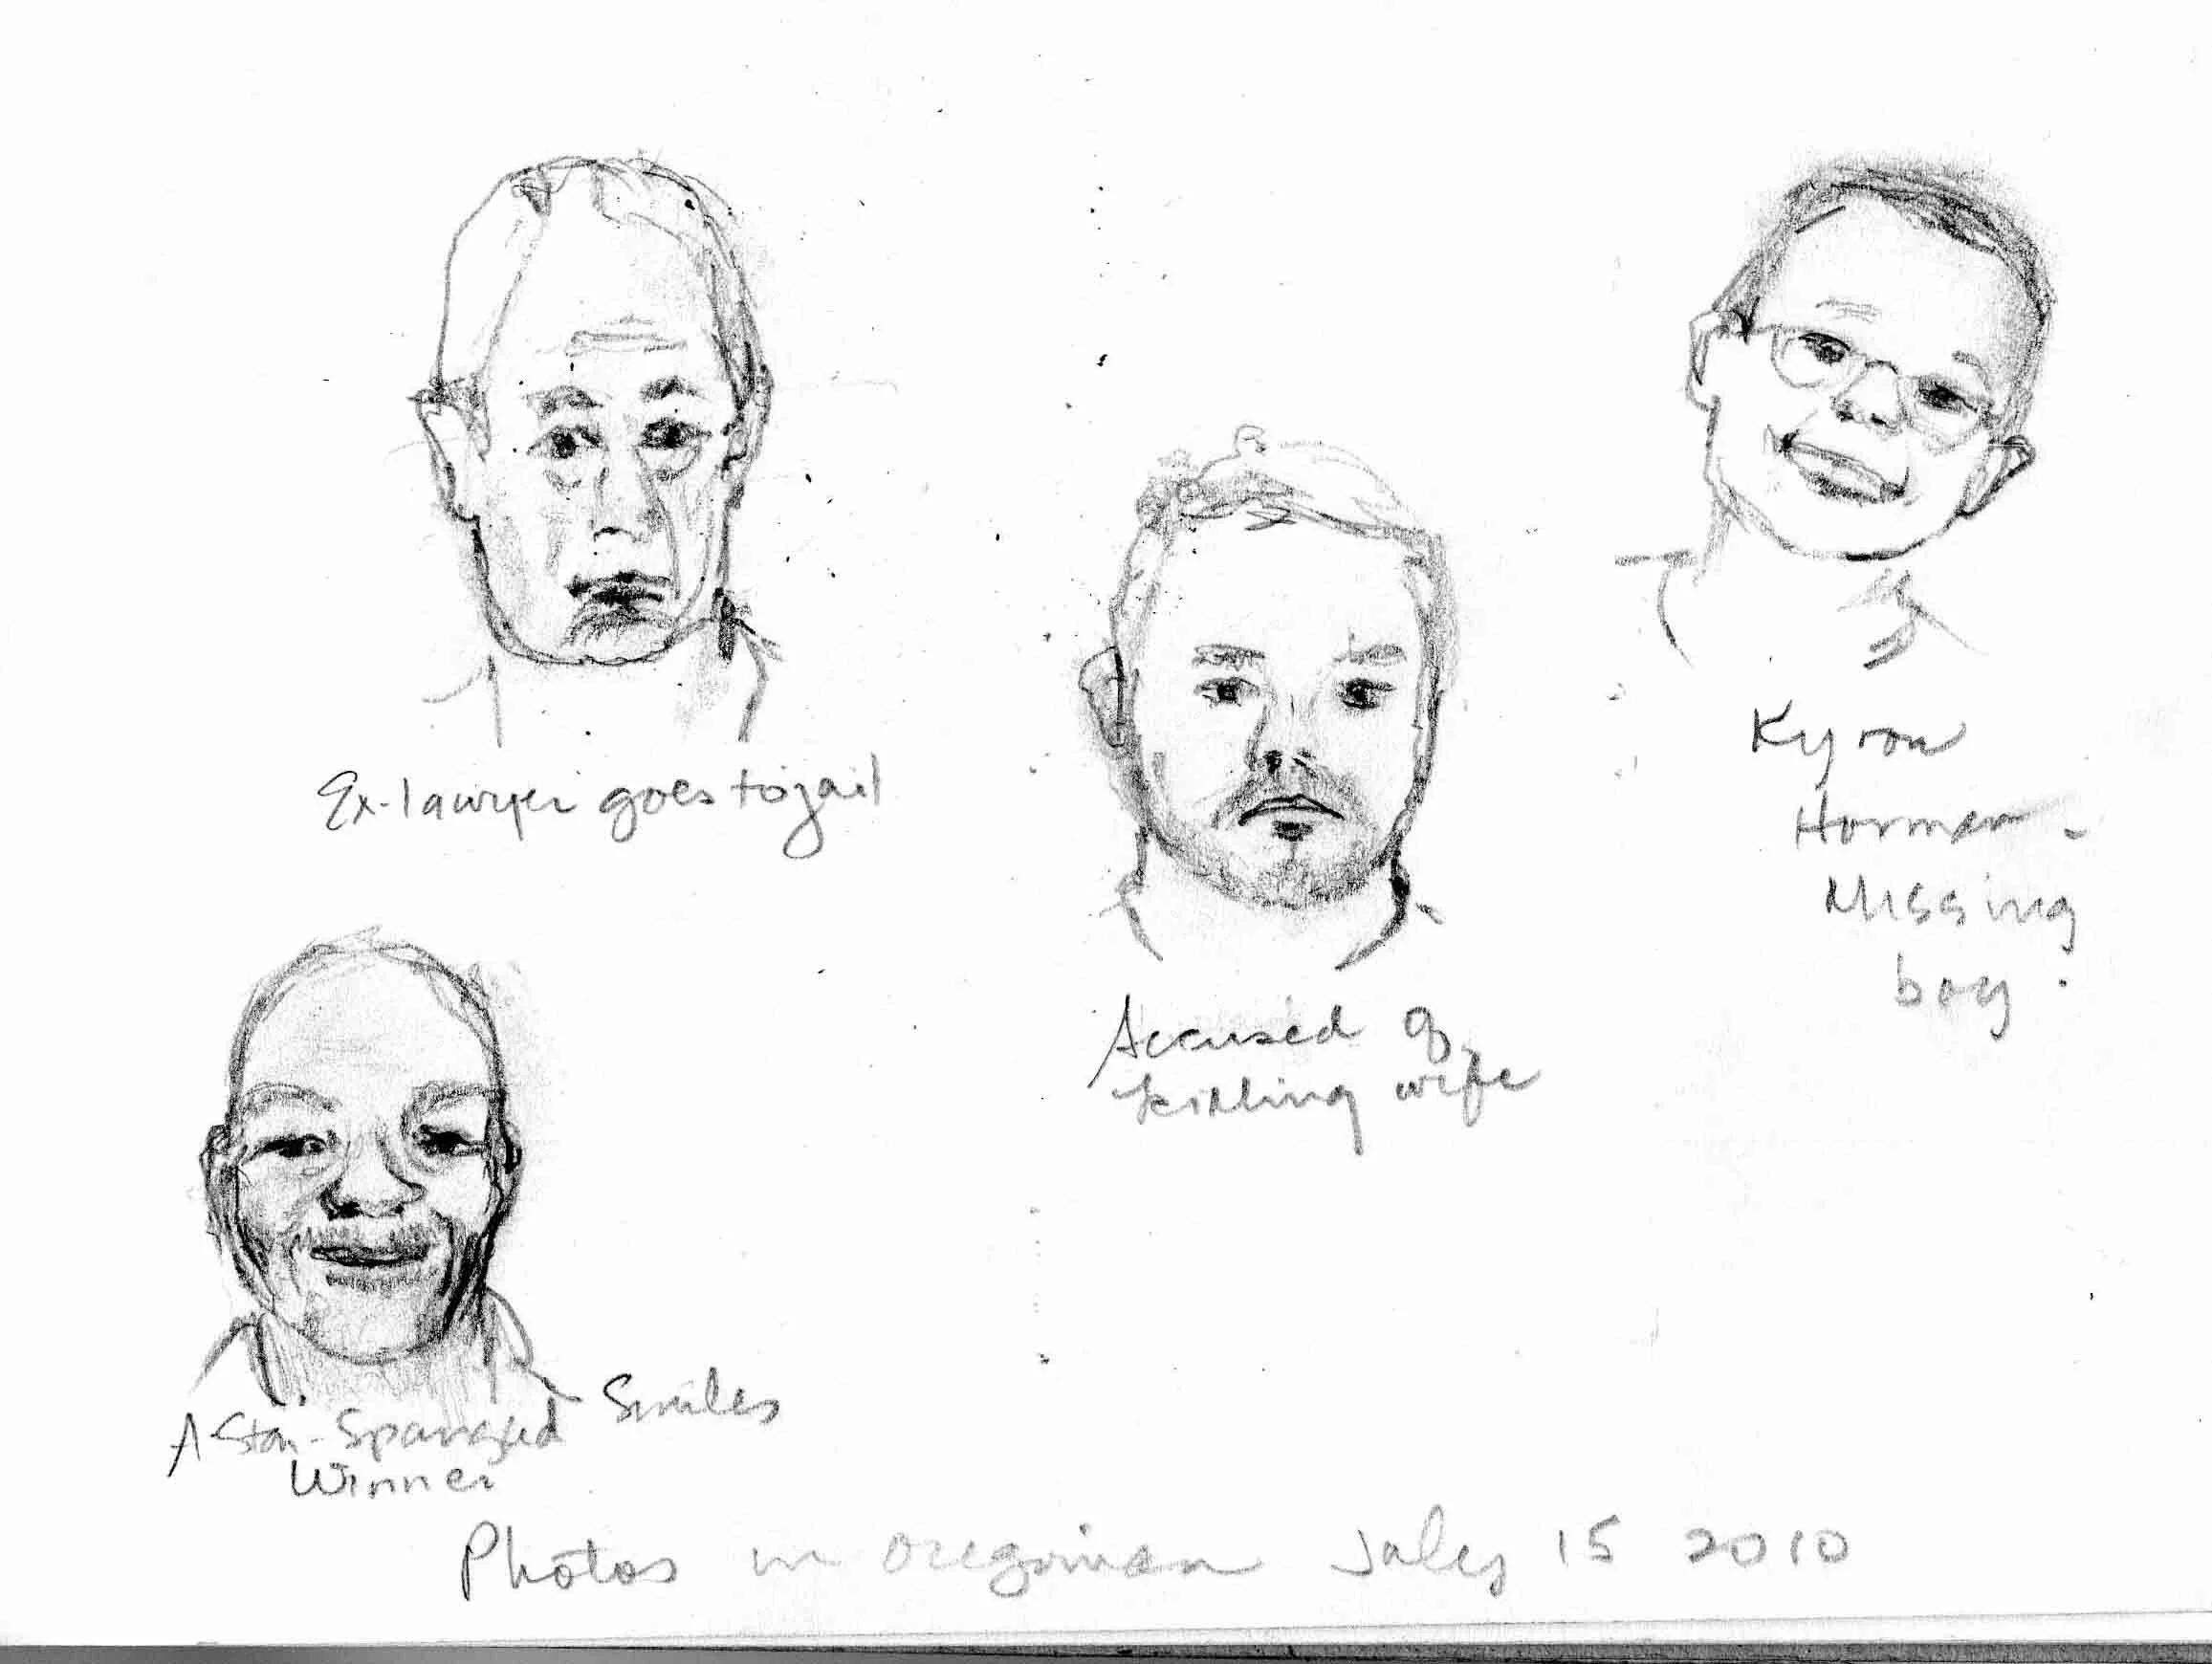 Ex-lawyer goes to jail
Kyron
Horman -
Missing
boy.
Accused of
killing wife
A Star-Spangled Smiles
Winner
Photos in Oregonian July 15 2010